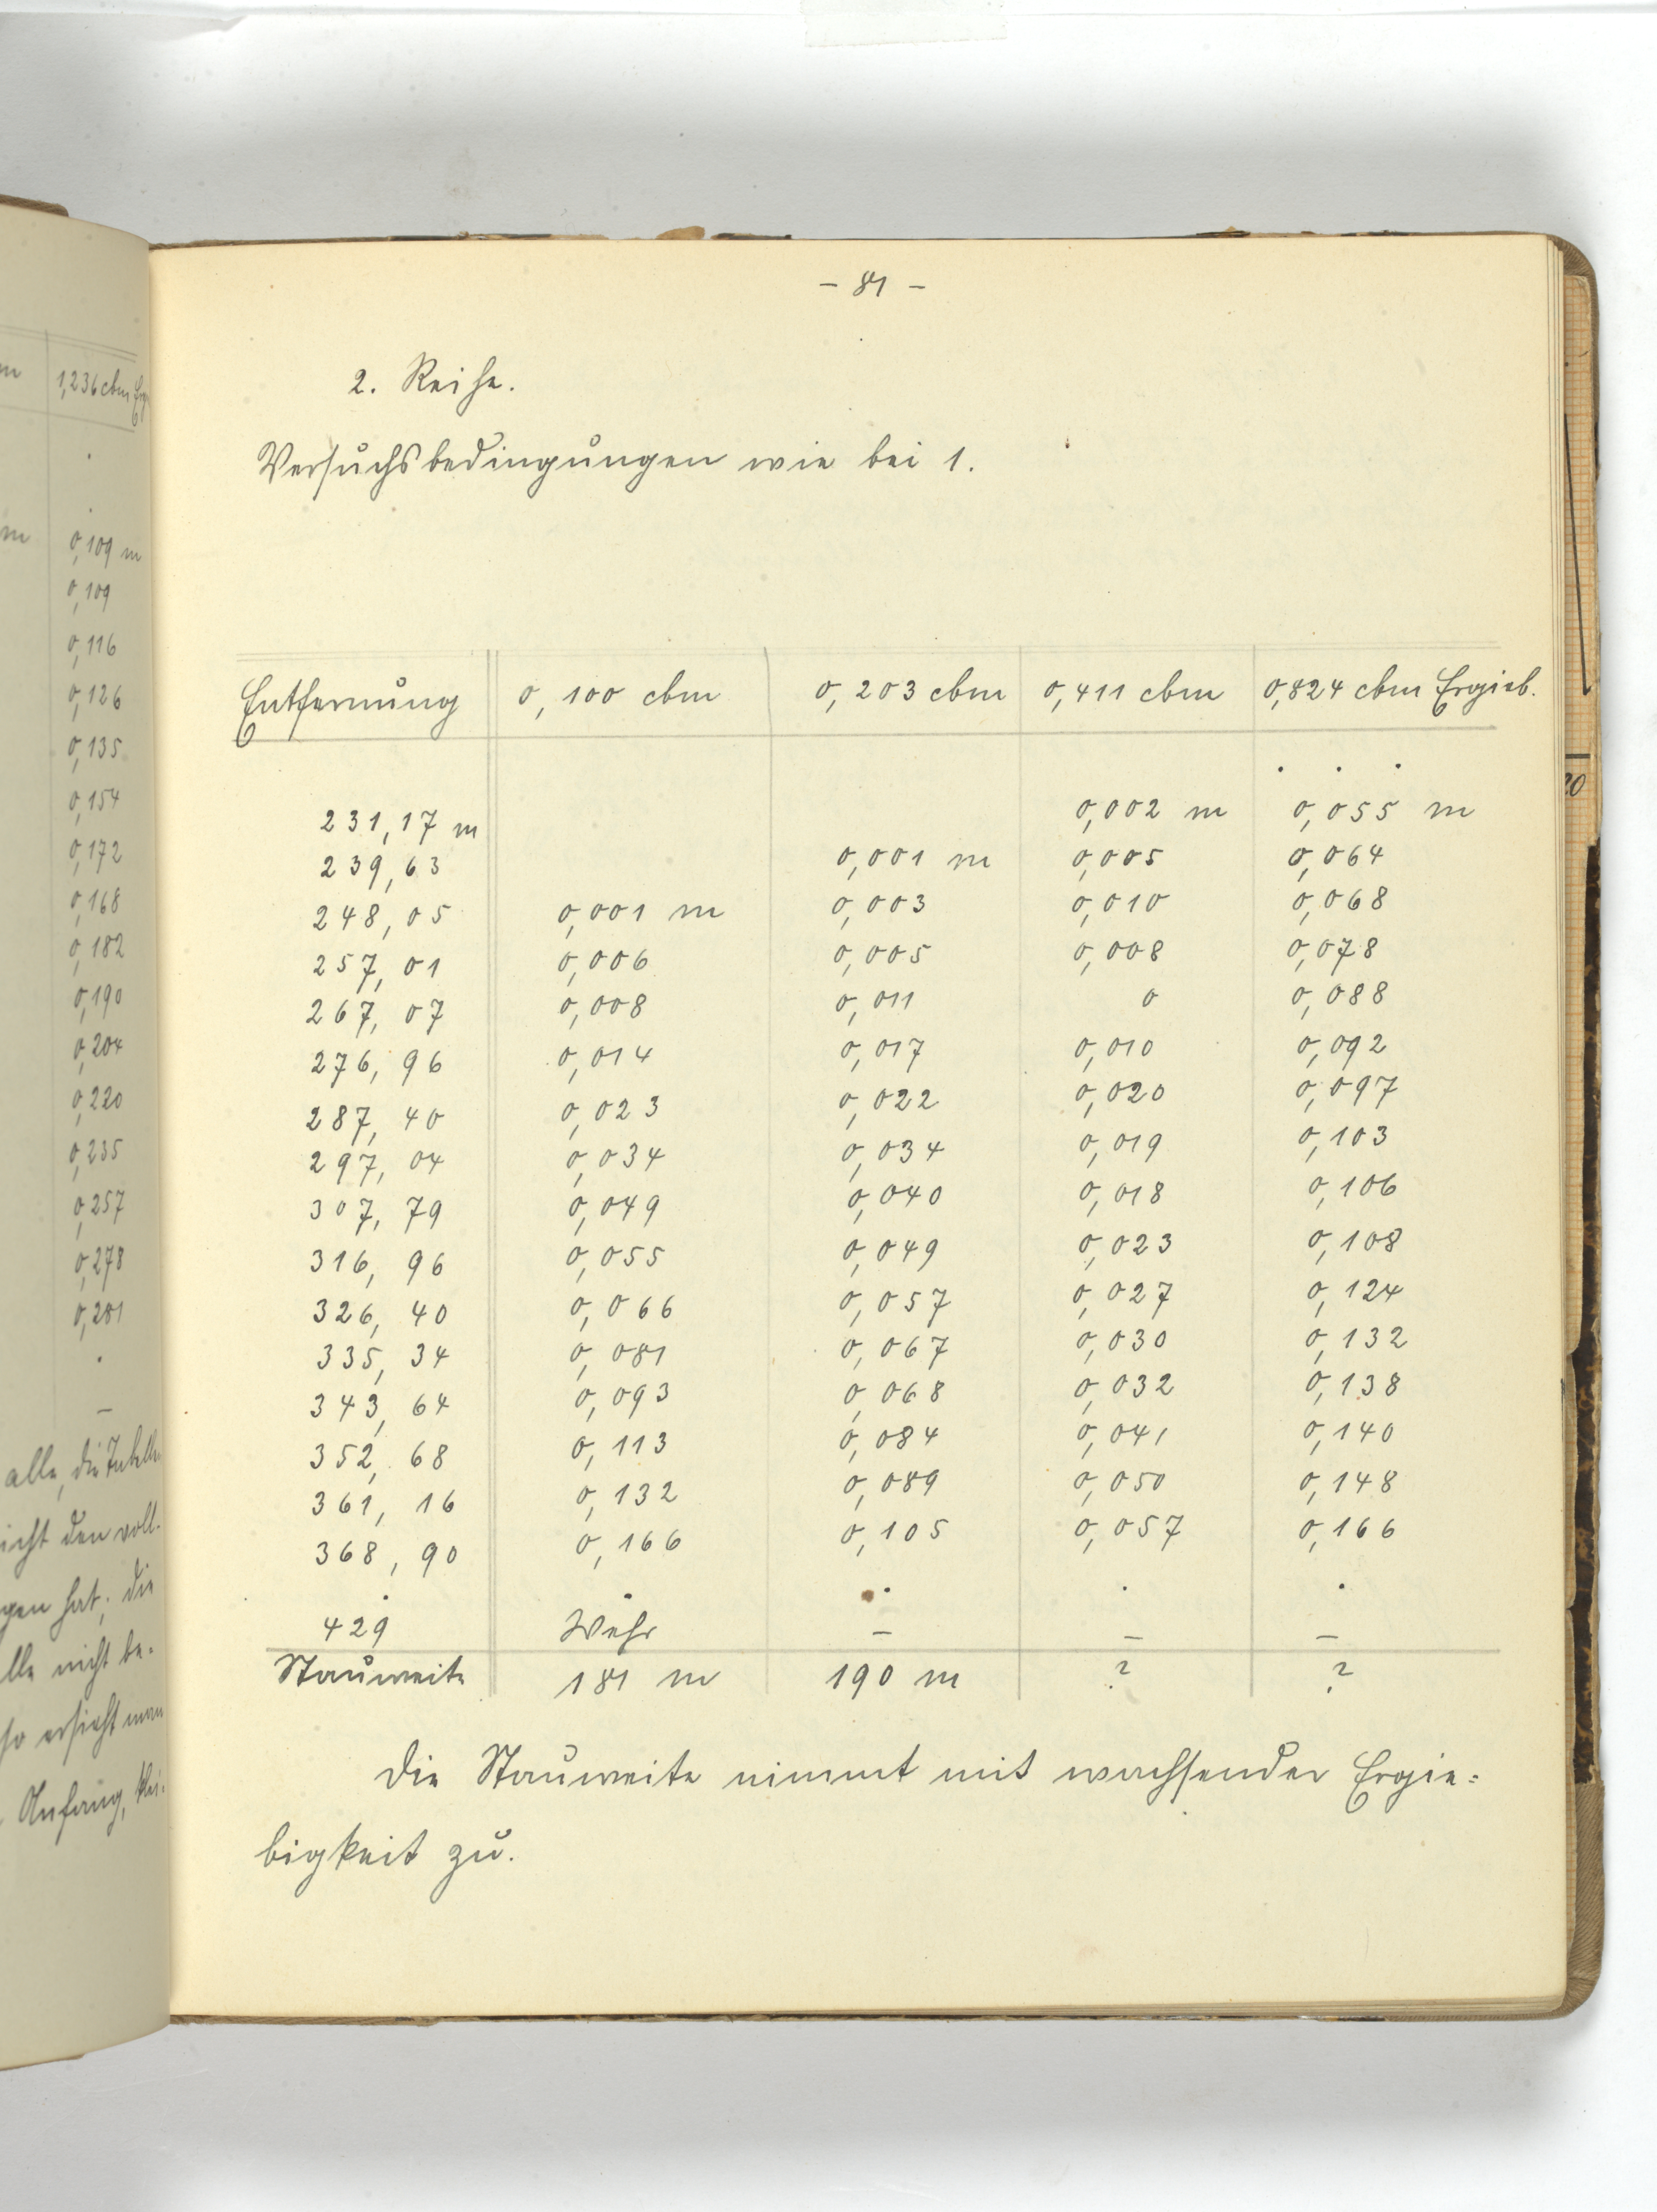 - 81 -
2. Reihe.
Versuchsbedingungen wie bei 1.
Entfernung 0,100 cbm 0,203 cbm 0,411 cbm 0,824 cbm Ergieb.
. . .
231,17 m 0,002 m 0,055 m
239,63 0,001 m 0,005 0,064
248,05 0,001 m 0,003 0,010 0,068
257,01 0,006 0,005 0,008 0,078
267,07 0,008 0,011 0 0,088
276,96 0,014 0,017 0,010 0,092
287,40 0,023 0,022 0,020 0,097
297,04 0,034 0,034 0,019 0,103
307,79 0,049 0,040 0,018 0,106
316,96 0,055 0,049 0,023 0,108
326,40 0,066 0,057 0,027 0,124
335,34 0,081 0,067 0,030 0,132
343,64 0,093 0,068 0,032 0,138
352,68 0,113 0,084 0,041 0,140
361,16 0,132 0,089 0,050 0,148
368,90 0,166 0,105 0,057 0,166
. . . . .
429 Wehr – – –
Stauweite 181 m 190 m ? ?
Die Stauweite nimmt mit wachsender Ergie=
bigkeit zu.
1,236 cbm
.
.
m 0,109 m
0,109
0,116
0,126
0,135
0,154
0,172
0,168
0,182
0,190
0,204
0,220
0,235
0,257
0,278
0,281
.
–
alle, die Tabelle
icht den voll-
gen hat; die
lle nicht be-
so ersieht man
Anfang,
20